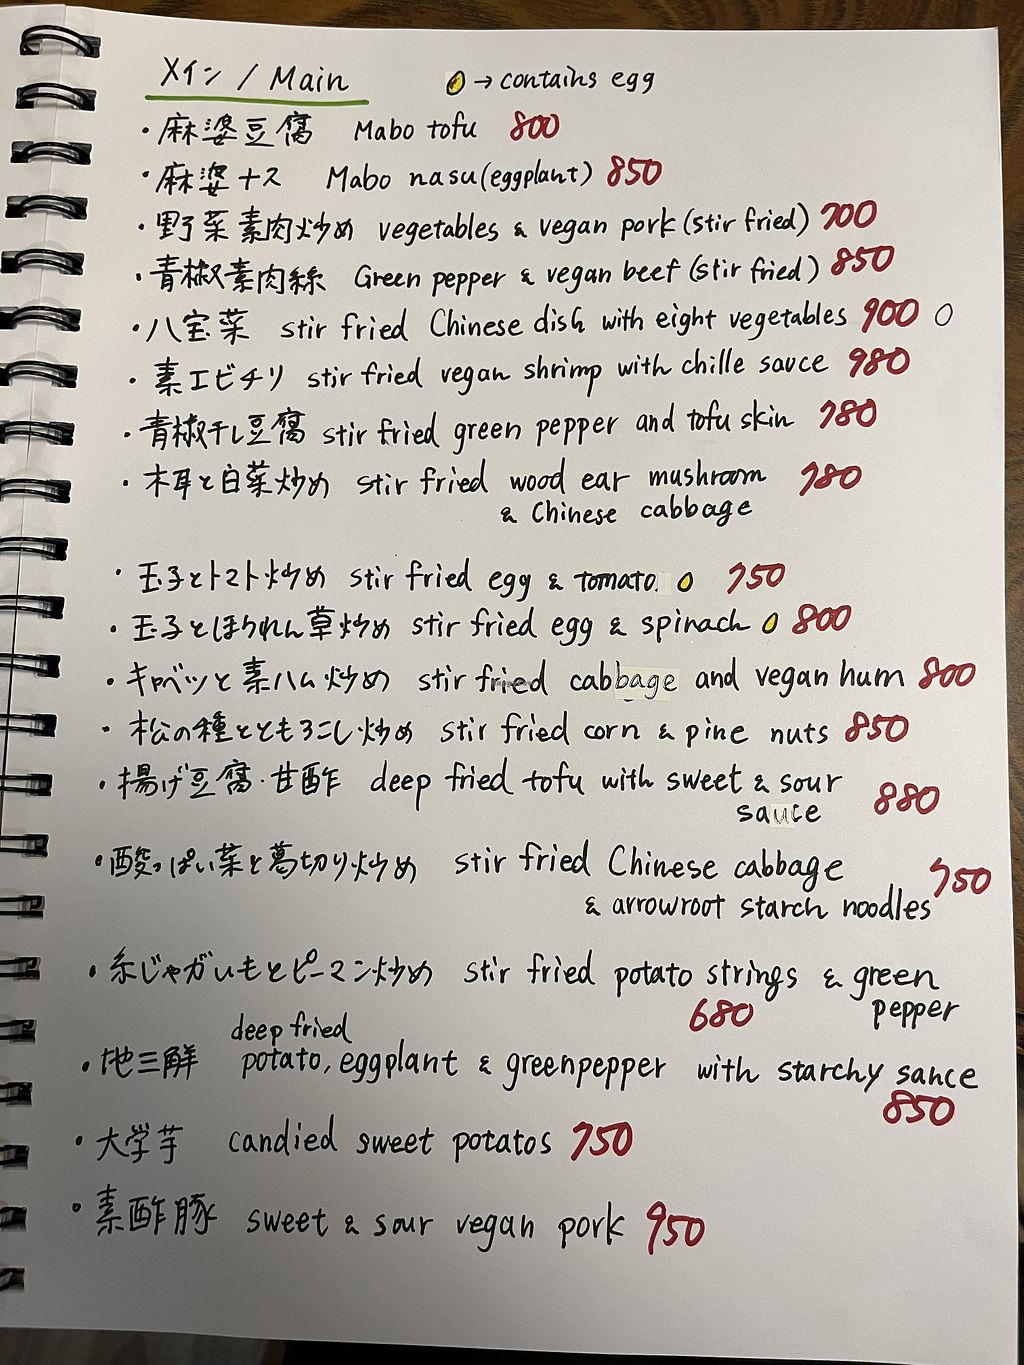 メイン / Main → contains egg
・麻婆豆腐 Mabo tofu 800
・麻婆ナス Mabo nasu (eggplant) 850
・野菜素肉炒め vegetables & vegan pork (stir fried) 700
・青椒素肉絲 Green pepper & vegan beef (stir fried) 850
・八宝菜 stir fried Chinese dish with eight vegetables 900
・素エビチリ stir fried vegan shrimp with chille sauce 980
・青椒干し豆腐 stir fried green pepper and tofu skin 780
・木耳と白菜炒め stir fried wood ear mushroom 780
& Chinese cabbage
・玉子とトマト炒め stir fried egg & tomato 750
・玉子とほうれん草炒め stir fried egg & spinach 800
・キャベツと素ハム炒め stir fried cabbage and vegan hum 800
・松の種とともろこし炒め stir fried corn & pine nuts 850
・揚げ豆腐・甘酢 deep fried tofu with sweet & sour
sauce 880
・酸っぱい菜と葛切り炒め stir fried Chinese cabbage 750
& arrowroot starch noodles
・糸じゃがいもとピーマン炒め stir fried potato strings & green
pepper 680
deep fried
・地三鮮 potato, eggplant & greenpepper with starchy sance
850
・大学芋 candied sweet potatos 750
・素酢豚 sweet & sour vegan pork 950